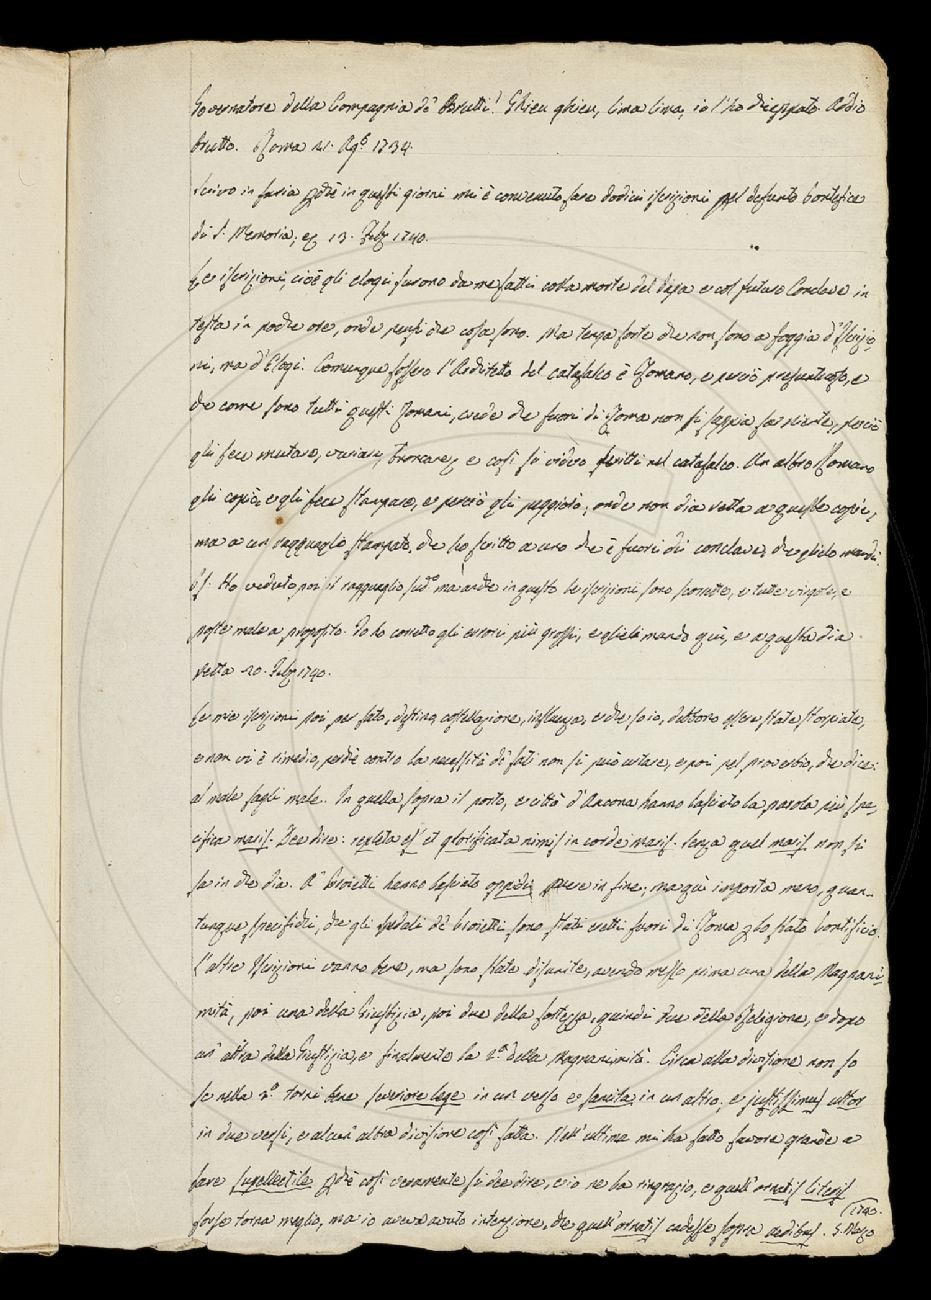 Governatore della Compagnia de' Brutti! Ghieu ghieu, lima lima, io l'ho Addio
brutto. Roma 21. Ag.º 1734.
Scrivo in furia pchè in questi giorni mi è convenuto fare dodici iscrizioni pel defunto Pontefice
di S. Memoria; e 13. Febb 1740.
Le iscrizioni, cioè gli elogi furono da me fatti colla morte del Papa e col futuro Conclave in
testa in poche ore, onde pensi che cosa sono. Ma tenga forte che non sono a foggia d'Iscrizio-
ni, ma d'Elogi. Comunque fossero l'Architetto del catafalco è Romano, e perciò presuntuoso, e
che come sono tutti questi Romani, crede che fuori di Roma non si sappia far niente, perciò
gli fece mutare, variare, troncare, e così si videro scritti nel catafalco. Un altro Romano
gli copiò, e gli fece stampare, e perciò gli peggiorò, onde non dia retta a queste copie,
ma a un ragguaglio stampato, che ho scritto a uno che è fuori di conclave, che glielo mandi.
P.S. Ho veduto poi il ragguaglio sud.º ma anche in questo le iscrizioni sono scorrette, e tutte virgole, e
poste male a proposito. Io ho corretto gli errori più grossi, e glieli mando qui, e a questa dia
retta 20. Febb 1740.
Le mie iscrizioni poi per fato, destino, costellazione, influenza, e che so io, debbono essere state storpiate,
e non vi è rimedio, perchè contro la necessità de' fati non si può urtare, e poi pel proverbio, che dice:
al male fagli male. In quella sopra il porto, e città d'Ancona hanno lasciato la parola più spe-
cifica maris. Dee dire: repleta es, et glorificata nimis in corde maris. Senza quel maris non si
sa in che dia. A' Proietti hanno lasciato oppidis in fine; ma qui importa meno, quan-
tunque specifichi, che gli spedali de' Proietti sono stati eretti fuori di Roma p lo stato Pontificio.
L'altre Iscrizioni vanno bene, ma sono state disunite, avendo messo prima una della Magnani-
mità, poi una della Giustizia, poi due della fortezza, quindi due della Religione, e dopo
un'altra della Giustizia, e finalmente la 2.ª della Magnanimità. Circa alla divisione non so
se nella 2.ª torni bene severiore lege in un verso e sancita in un altro, e justissimus ultor
in due versi, e alcun'altra divisione così fatta. Nell'ultima mi ha fatto favore grande a
fare supellectile pchè così veramente si dee dire, e io ne la ringrazio, e quell'ornatis literis
forse torna meglio, ma io aveva avuto intenzione, che quell'ornatis cadesse sopra aedibus. 5. Marzo
1740.